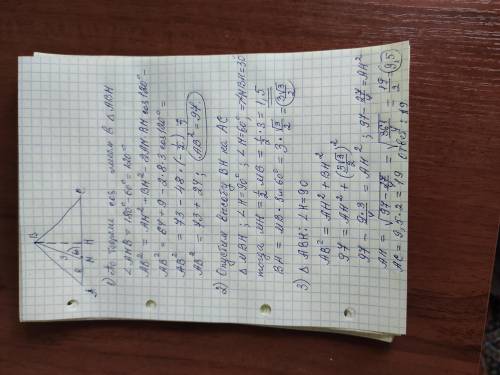 B
8
3
60°
A M H C
1) По теореме cos имеем в △ ABH
∠ AMB = 180° - 60° = 120°
AB² = AH² + BH² - 2AH·BH cos 120° -
AB² = 64 + 9 - 2·8·3 cos 120° =
AB² = 73 - 48·(-1/2) ⇒
AB² = 73 + 24; AB² = 97
2) Опустим высоту BH на AC
△ MBH; ∠H = 90°; ∠M = 60°, ⇒ ∠MBH = 30
тогда MH = 1/2 MB = 1/2 · 3 = 1,5
BH = MB · Sin 60° = 3 · √3/2 = 3√3/2
3) △ ABH; ∠H = 90
AB² = AH² + BH²
97 = AH² + (3√3/2)²
97 - 9·3/4 = AH²; 97 - 27/4 = AH²
AH = √(97 - 27/4) = √(361/4) = 19/2 = 9,5
AC = 9,5 · 2 = 19 Ответ: 19